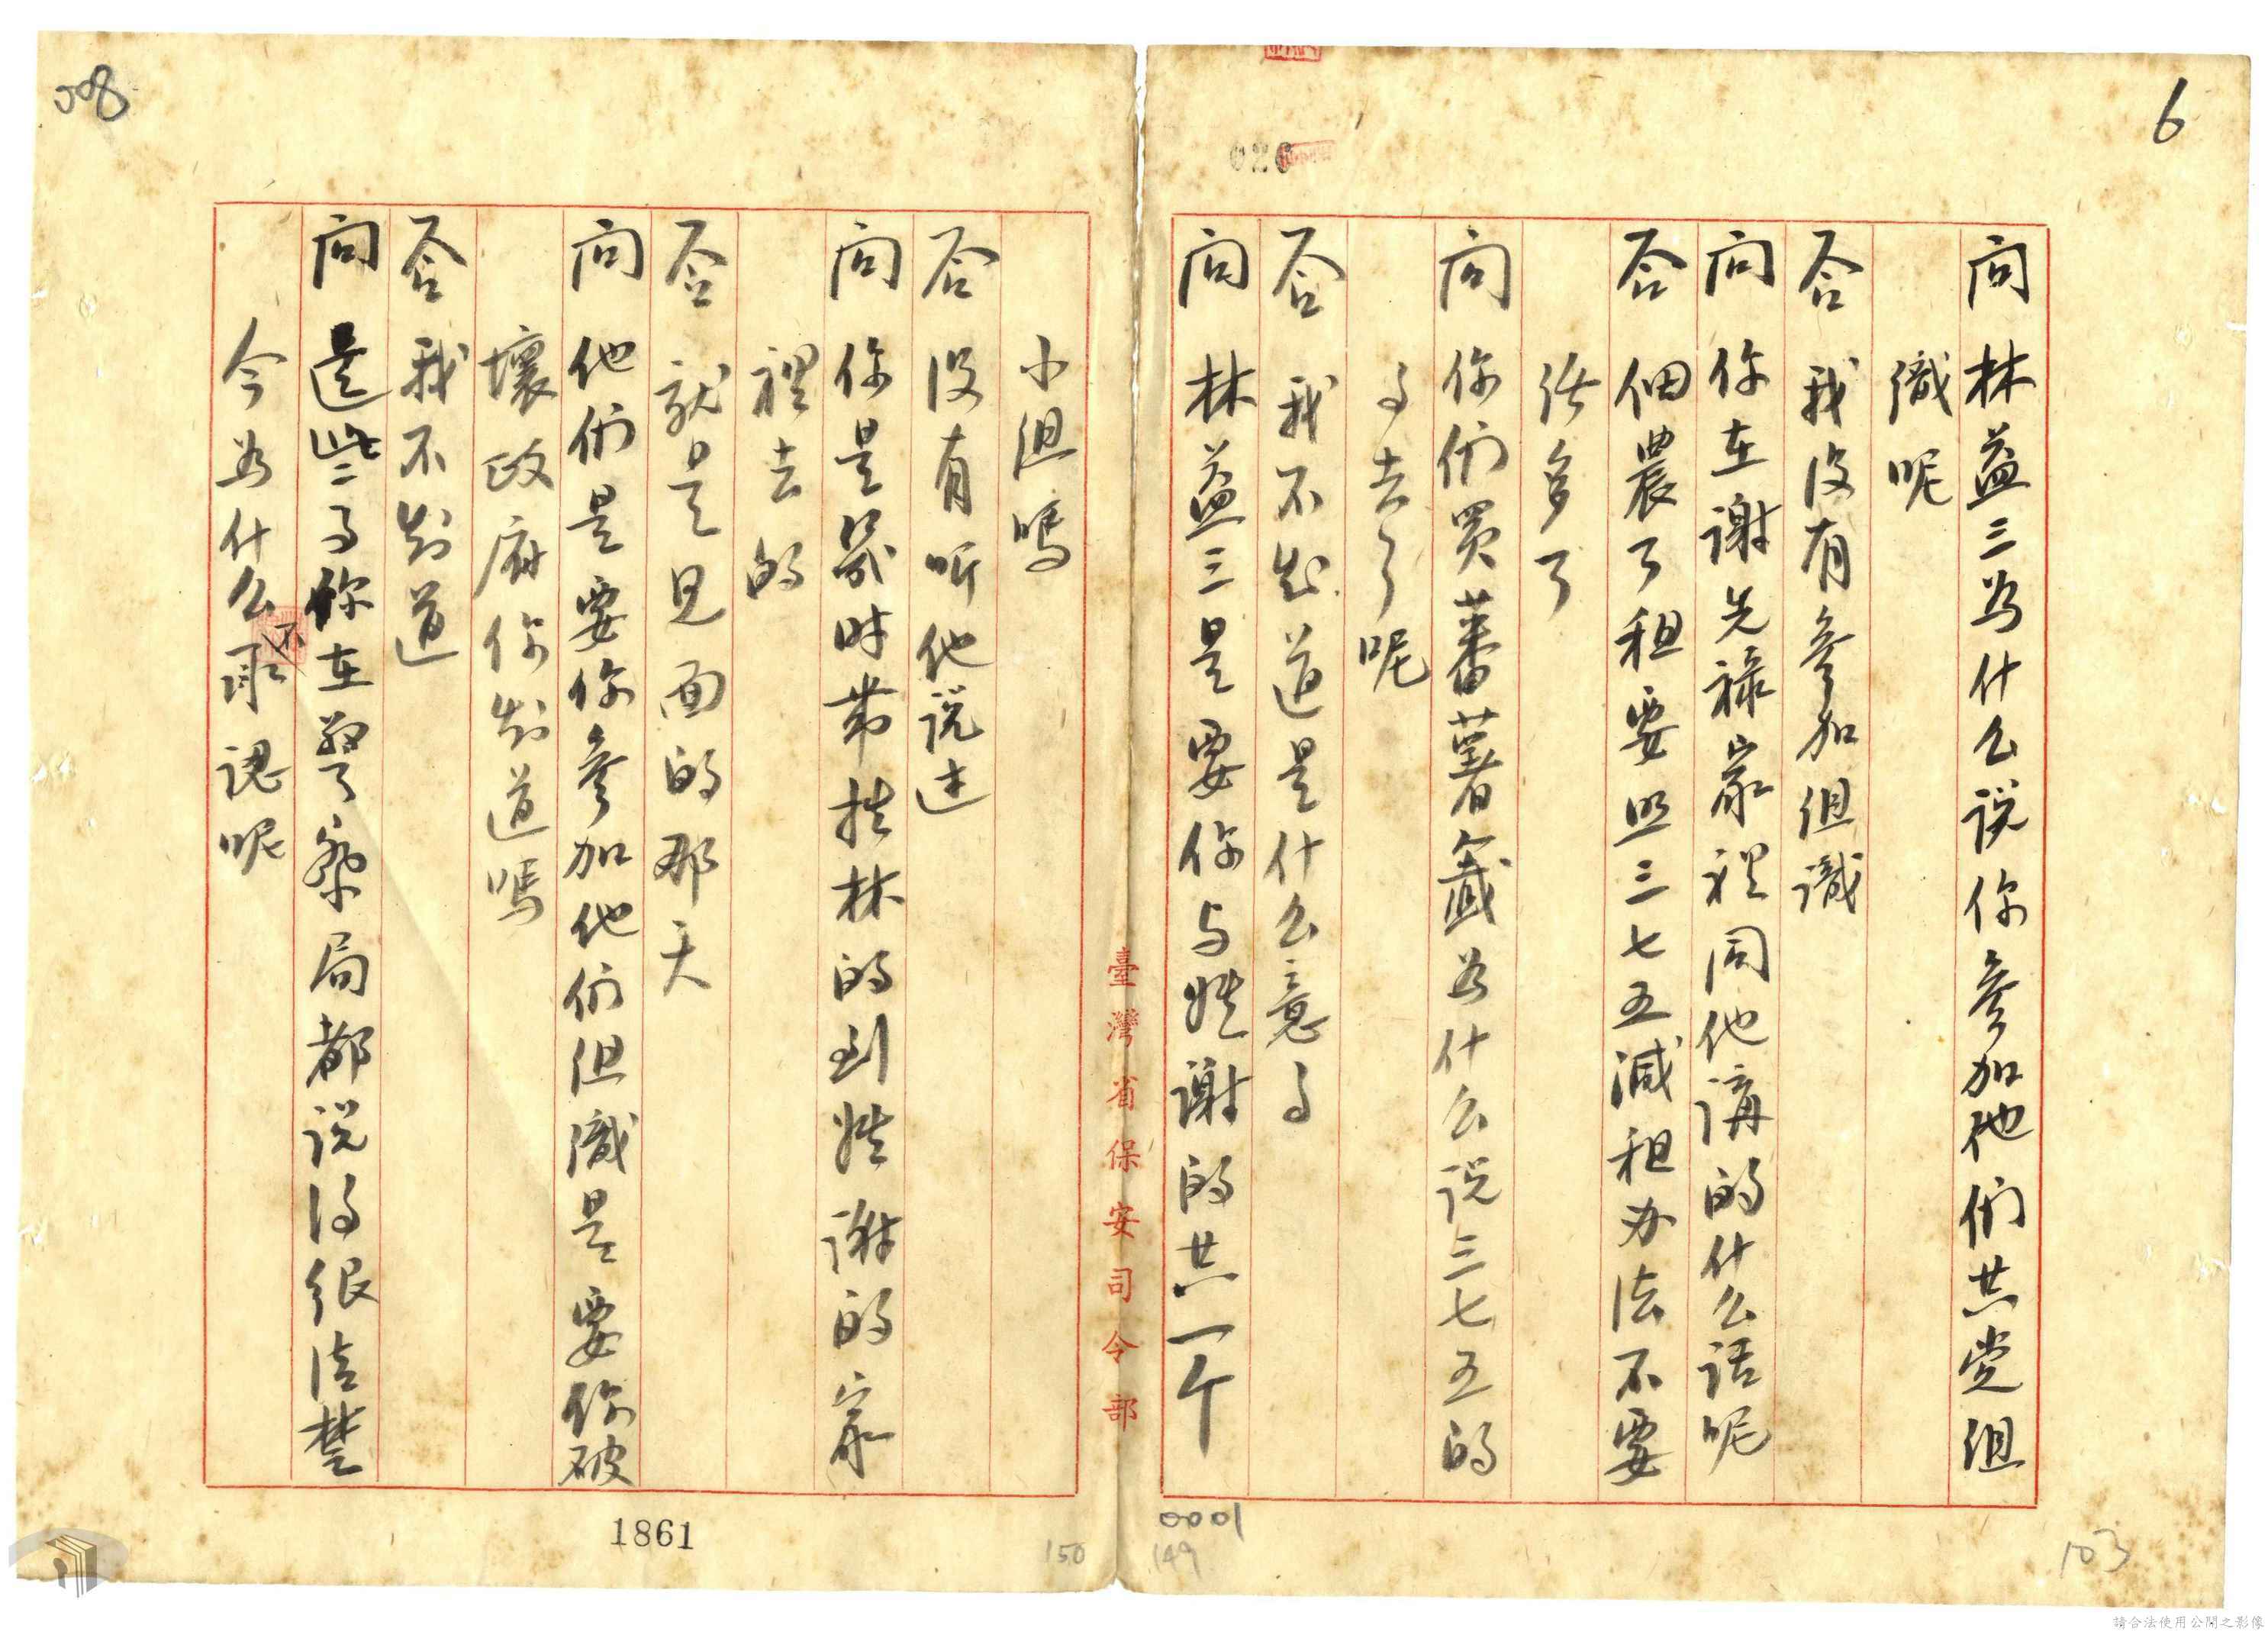 6
020
問 林益三為什么說你參加他們共党组
識呢
答 我沒有參加组識
問 你在謝先祿家裡同他講的什么話呢
答 佃農了租要照三七五減租办法不要
活多了
問 你們買蕃薯籤为什么说三七五的
了去了呢
答 我不知道是什么意了
問 林益三是要你与姓謝的共一个
0001
149
103
臺灣省保安司令部
008
小组嗎
答 没有听他說过
問 你是幾时带姓林的到姓謝的家
裡去的
答 就是見面的那天
問 他們是要你參加他們组識是要你破
壞政府你知道嗎
答 我不知道
問 這些了你在警察局都说得很清楚
今为什么不承認呢
1861
150
請合法使用公開之影像